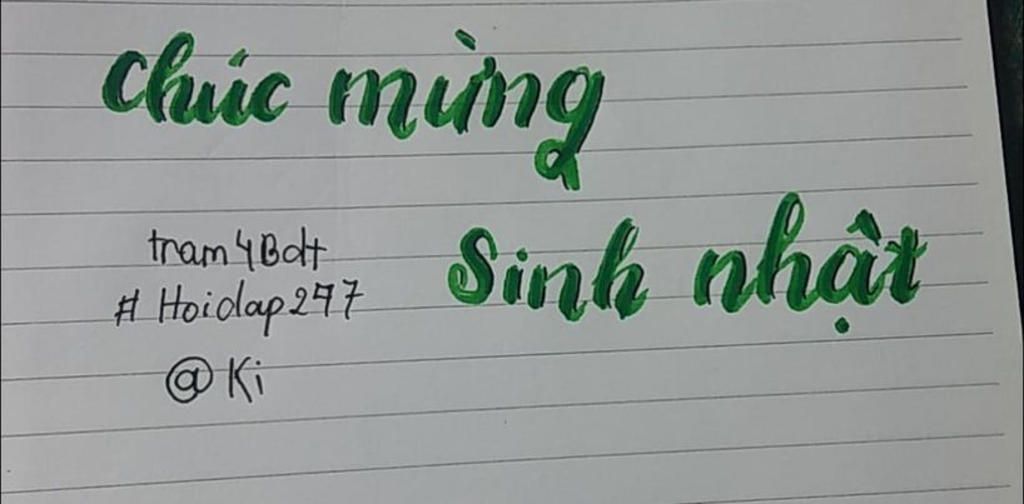 Chúc mừng
Sinh nhật
tram4Bdt
# Hoidap247
@Ki